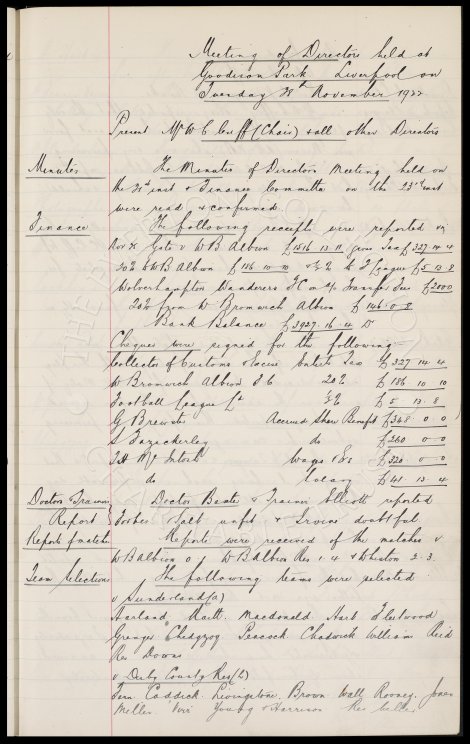 Meeting of Directors held at
Goodison Park Liverpool on
Tuesday 28th November 1922
Present Mr W C Cuff (Chair) & all other Directors
Minutes The Minutes of Directors Meeting held on
the 21st inst & Finance Committee on the 23rd inst
were read & confirmed
Finance The following receipts were reported
Nov 25 Gate v W B Albion £1516 13 11 gross Tax £327 14 4
20% to W B Albion £186 10 10 & ½% to F League £5 13 8
Wolverhampton Wanderers F C on a/c Transfer Fees £2000
20% from W Bromwich Albion £146 0 8
Bank Balance £3927 16 4 D
Cheques were signed for the following
Collector of Customs & Excise Entert Tax £327 14 4
W Bromwich Albion F C 20% £186 10 10
Football League Ld ½% £5 13 8
G Brewster Accrued Share Benefit £348 0 0
S Fazackerley do £260 0 0
T H McIntosh Wages & Es £320 0 0
do Salary £41 13 4
Doctors & Trainers Doctor Baxter & Trainer Elliott reported
Report Forbes & Salt unfit & Irvine doubtful
Reports of matches Reports were received of the matches v
W B Albion 0 W B Albion Res 1-4 & Whiston 2-3
Team Selection The following teams were selected
v Sunderland (a)
Harland Raitt Macdonald Hart Fleetwood
Grenyer Chedgzoy Peacock Chadwick Williams Reid
Res Downs
v Derby County Res (h)
Fern Caddick Livingstone Brown Wall Rooney Jones
Miller Virr Young & Harrison Res